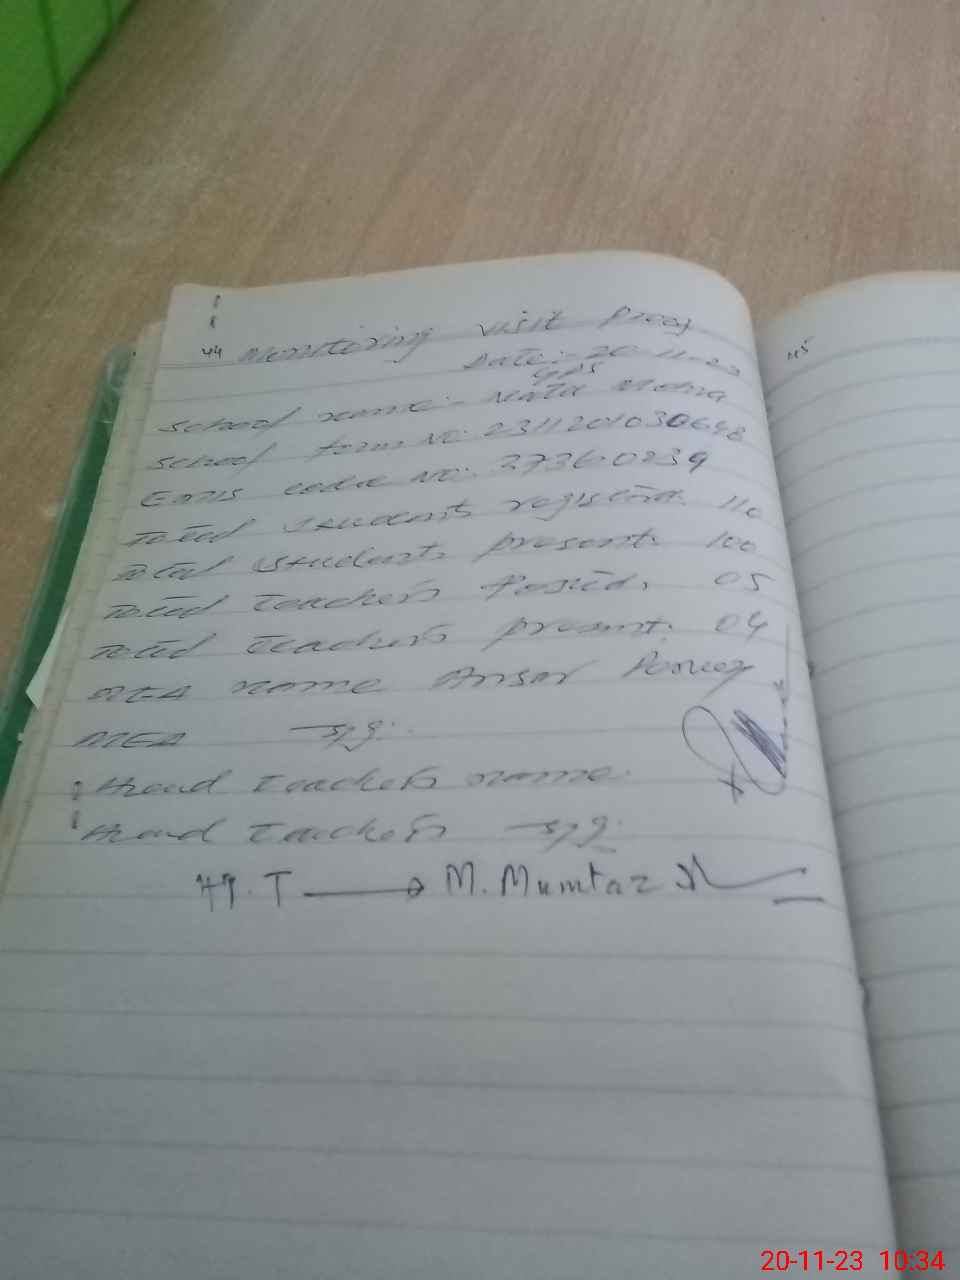 44 Monitoring visit Proof
Date:- 20-11-23
GPS
School name:- Mohra
School form No: 231120103
EMIS code No: 27360239
Total students register: 110
Total students present: 100
Total teachers Posted: 05
Total teachers present: 04
MEA name Ansar
MEA sig:
Head teachers name:
Head teachers sig:
H.T → M. Mumtaz
45
20-11-23 10:34